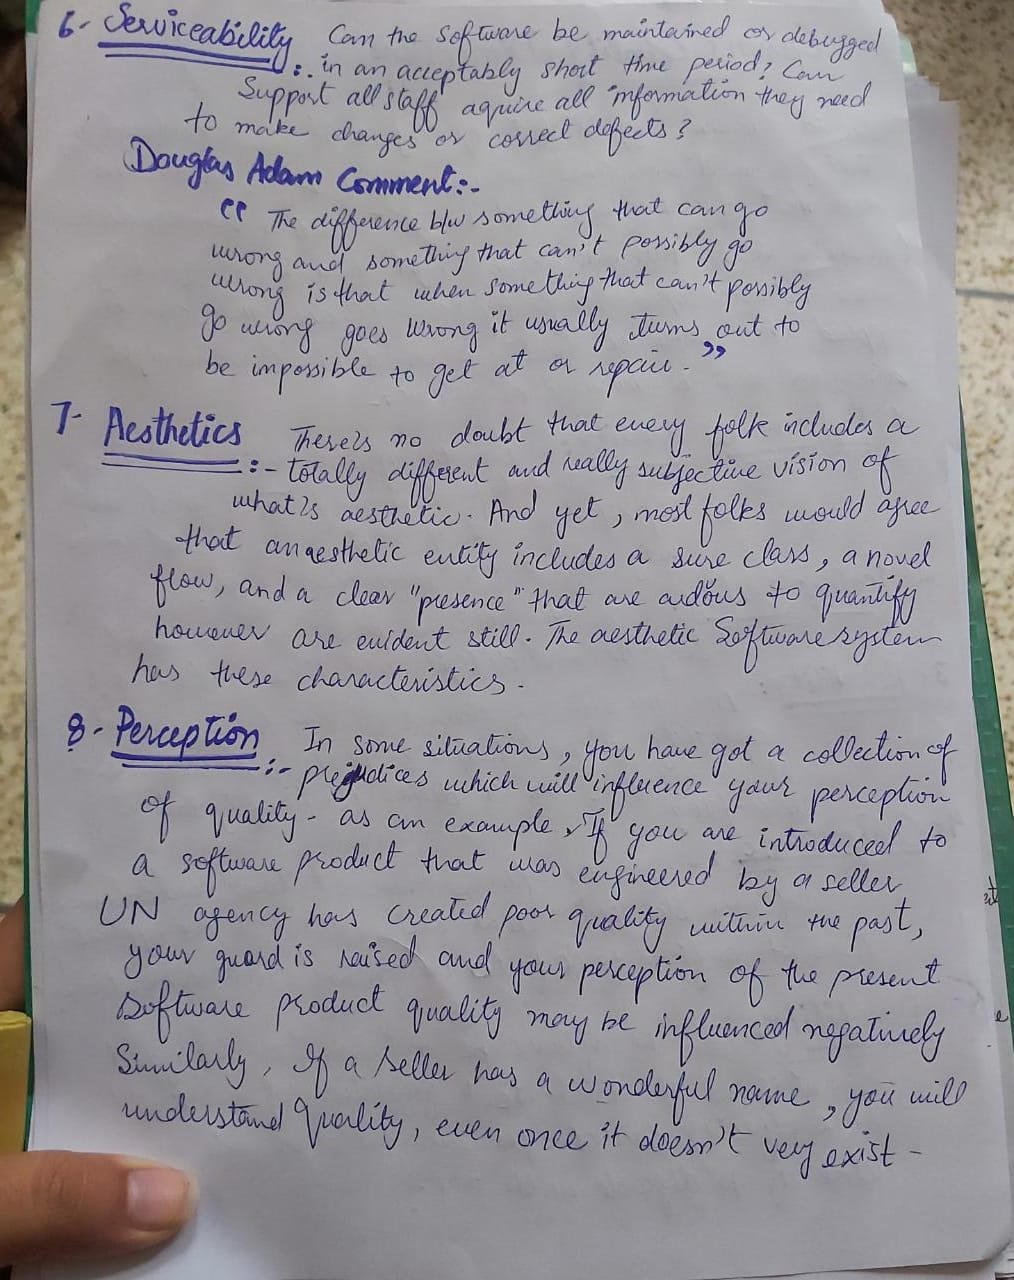 6- Serviceability: Can the software be maintained or debugged
in an acceptably short time period? Can
Support all staff aquire all information they need
to make changes or correct defects?
Douglas Adam Comment:-
" The difference b/w something that can go
wrong and something that can't possibly go
wrong is that when something that can't possibly
go wrong goes wrong it usually turns out to
be impossible to get at or repair. "
7- Aesthetics :- There's no doubt that every folk includes a
totally different and really subjective vision of
what's aesthetic. And yet, most folks would agree
that an aesthetic entity includes a sure class, a novel
flow, and a clear "presence" that are to quantify
however are evident still. The aesthetic Software system
has these characteristics.
8- Perception :- In some situations, you have got a collection of
prejudices which will influence your perception
of quality - as an example, If you are introduced to
a software product that was engineered by a seller
UN agency has created poor quality within the past,
your guard is raised and your perception of the present
Software product quality may be influenced negatively
Similarly, If a seller has a wonderful name, you will
understand quality, even once it doesn't very exist -